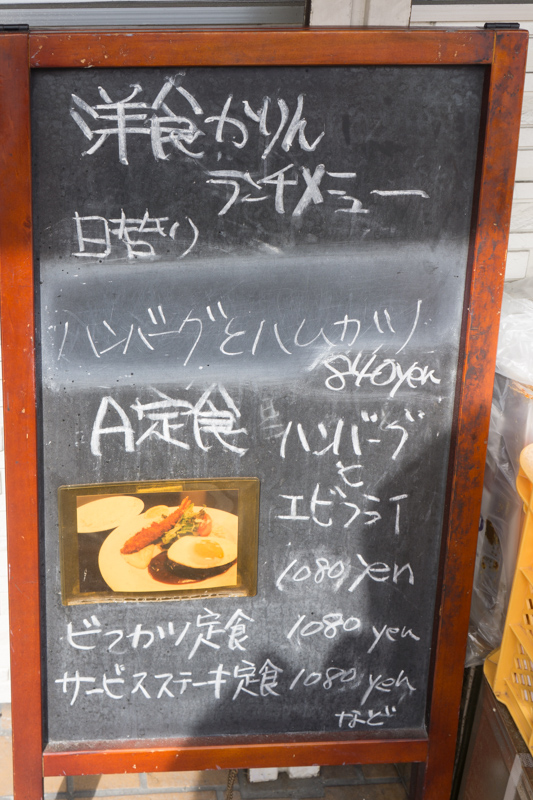 洋食かりん
ランチメニュー
日替り
ハンバーグとハムカツ
840yen
A定食
ハンバーグ
と
エビフライ
1080yen
ビフカツ定食 1080 yen
サービスステーキ定食 1080 yen
など